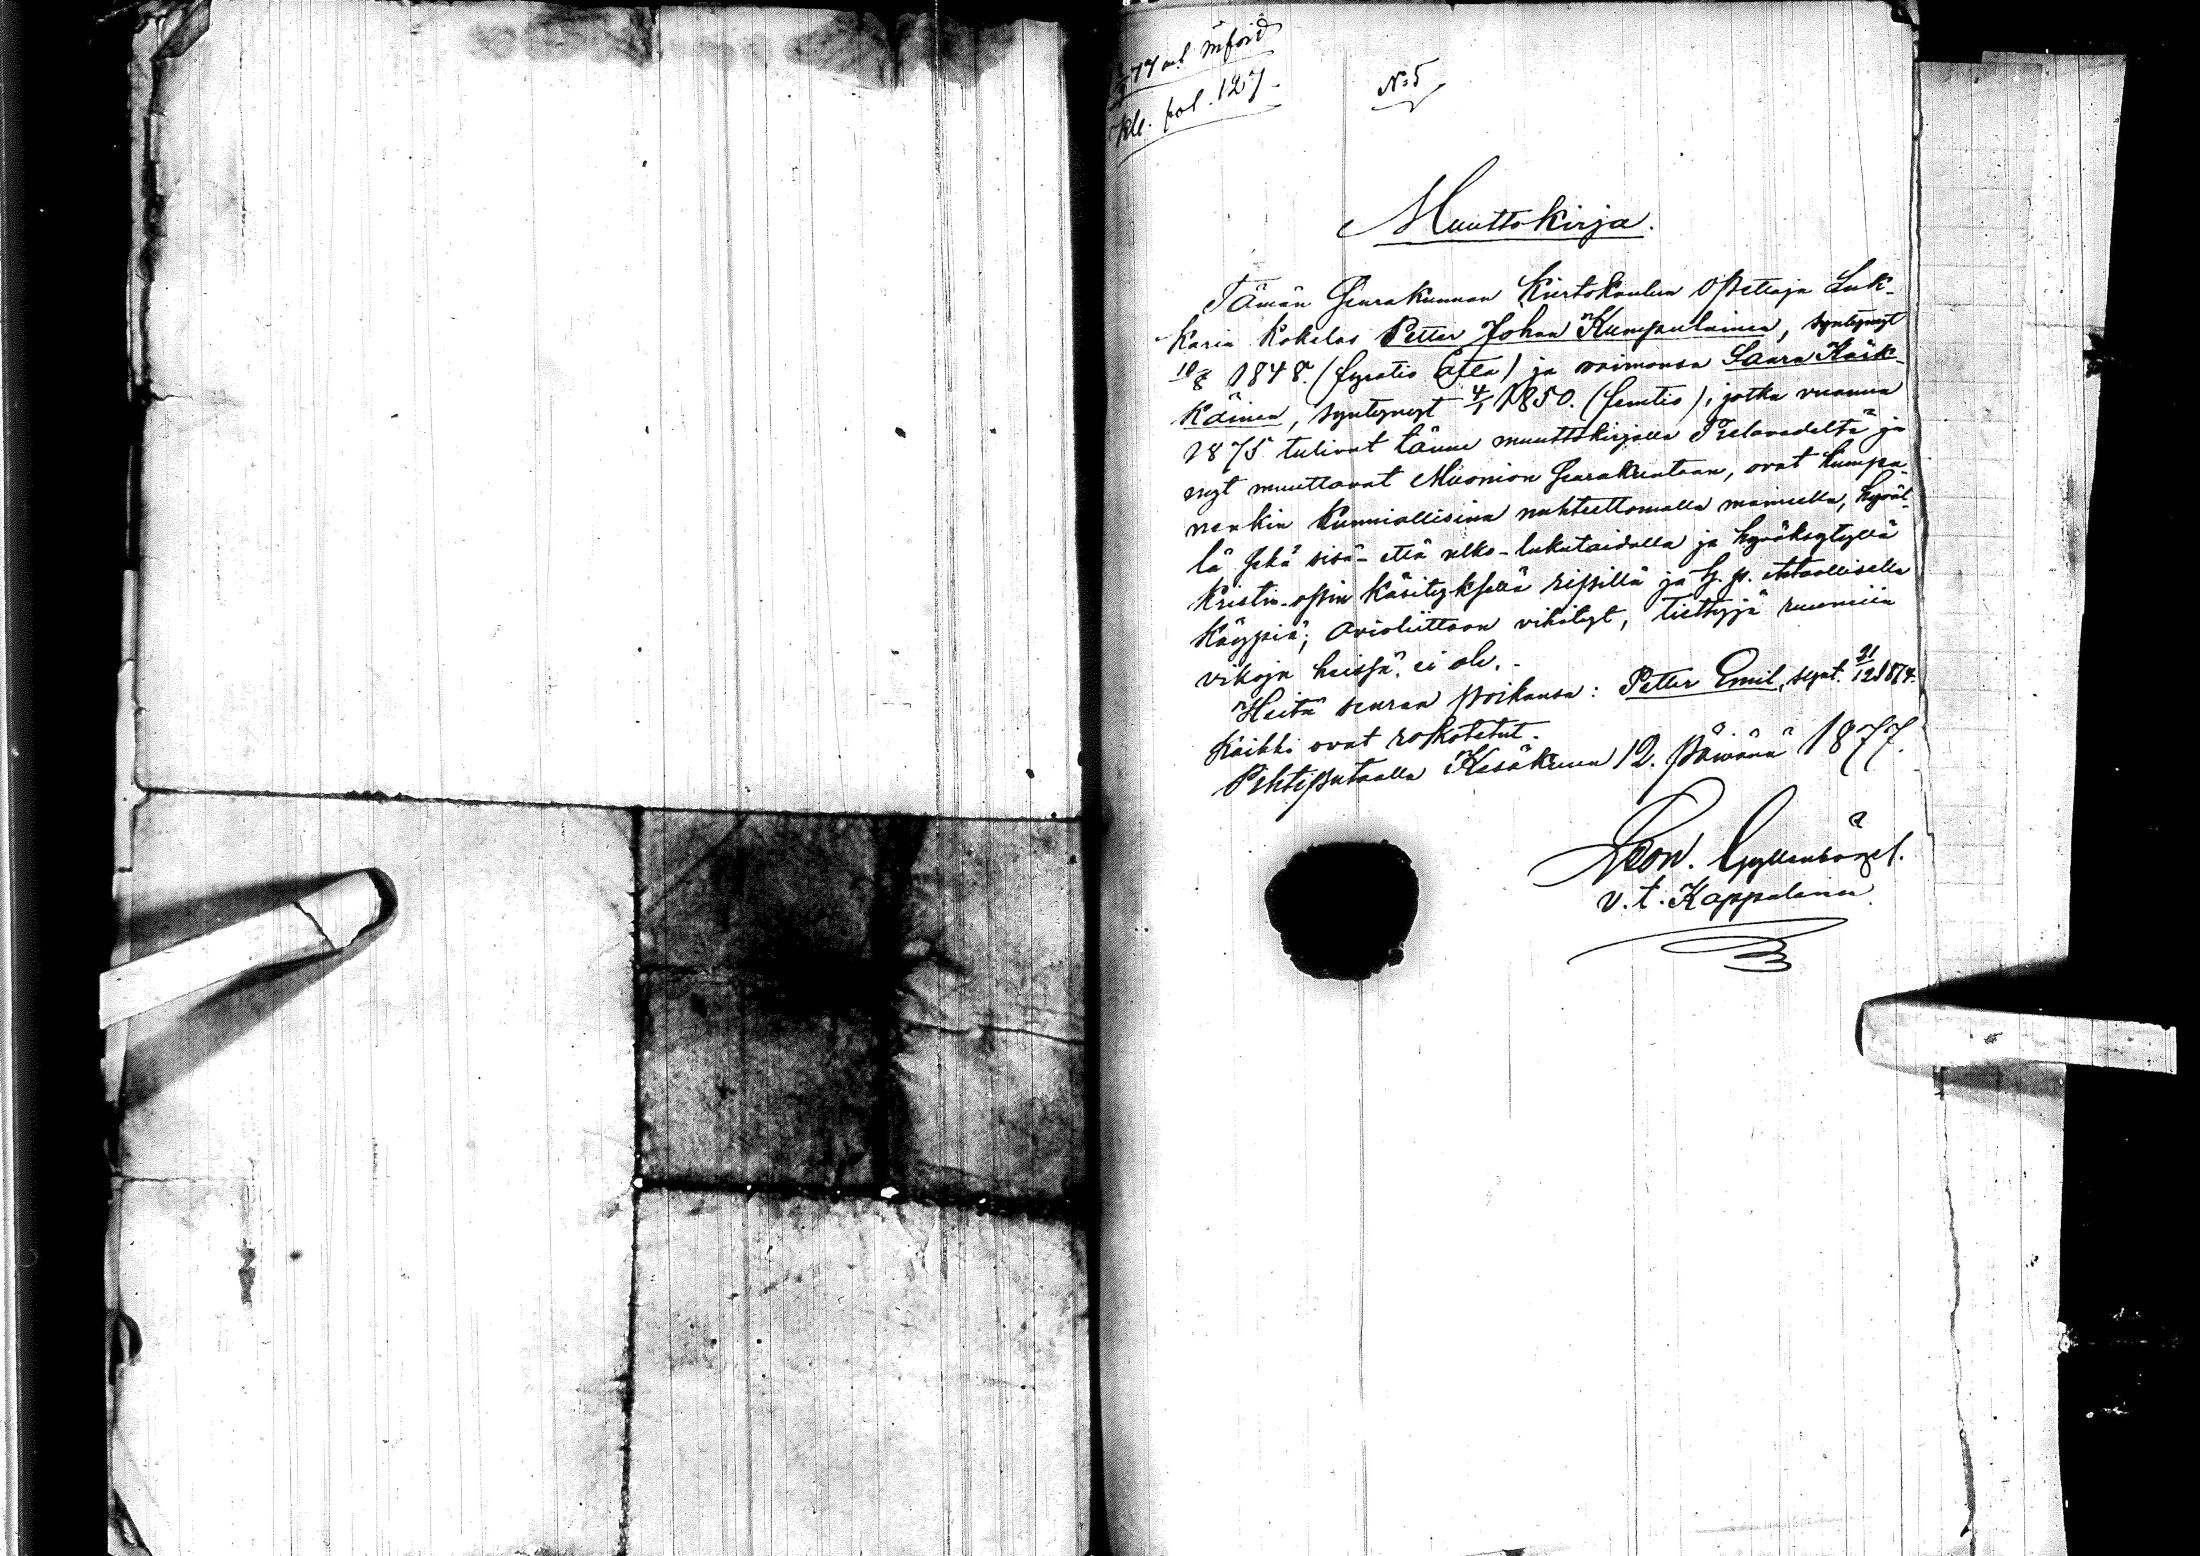 77 ad inford
Kle. fol. 127.
No 5
Muuttokirja.
Tämän Seurakunnan Kiertokoulun Opettaja Luk-
karin kokelas Petter Johan Kumpulainen, syntynyt
10/8 1848. (fyratio åtta) ja vaimonsa Saara Kärk-
käinen, syntynyt 4/1 1850. (femtio), jotka vuonna
1875 tulivat tänne muuttokirjalla Pielavedeltä ja
nyt muuttavat Muonion Seurakuntaan, ovat kumpa-
nenkin kunniallisina nuhteettomalla maineella, hyväl-
lä sekä sisä- että ulko-lukutaidolla ja hyväksytyllä
Kristin-opin käsityksellä ripillä ja h. p. ehtoollisella
käypiä; Avioliittoon vihityt, tiettyjä ruumiin
vikoja heissä ei ole.-
Heitä seuraa poikansa: Petter Emil, synt. 21/12 1874.
Kaikki ovat rokotetut.
Pihtiputaalla Kesäkuun 12. päivänä 1877.
Leon. Gyllenbögel.
v. t. Kappalainen